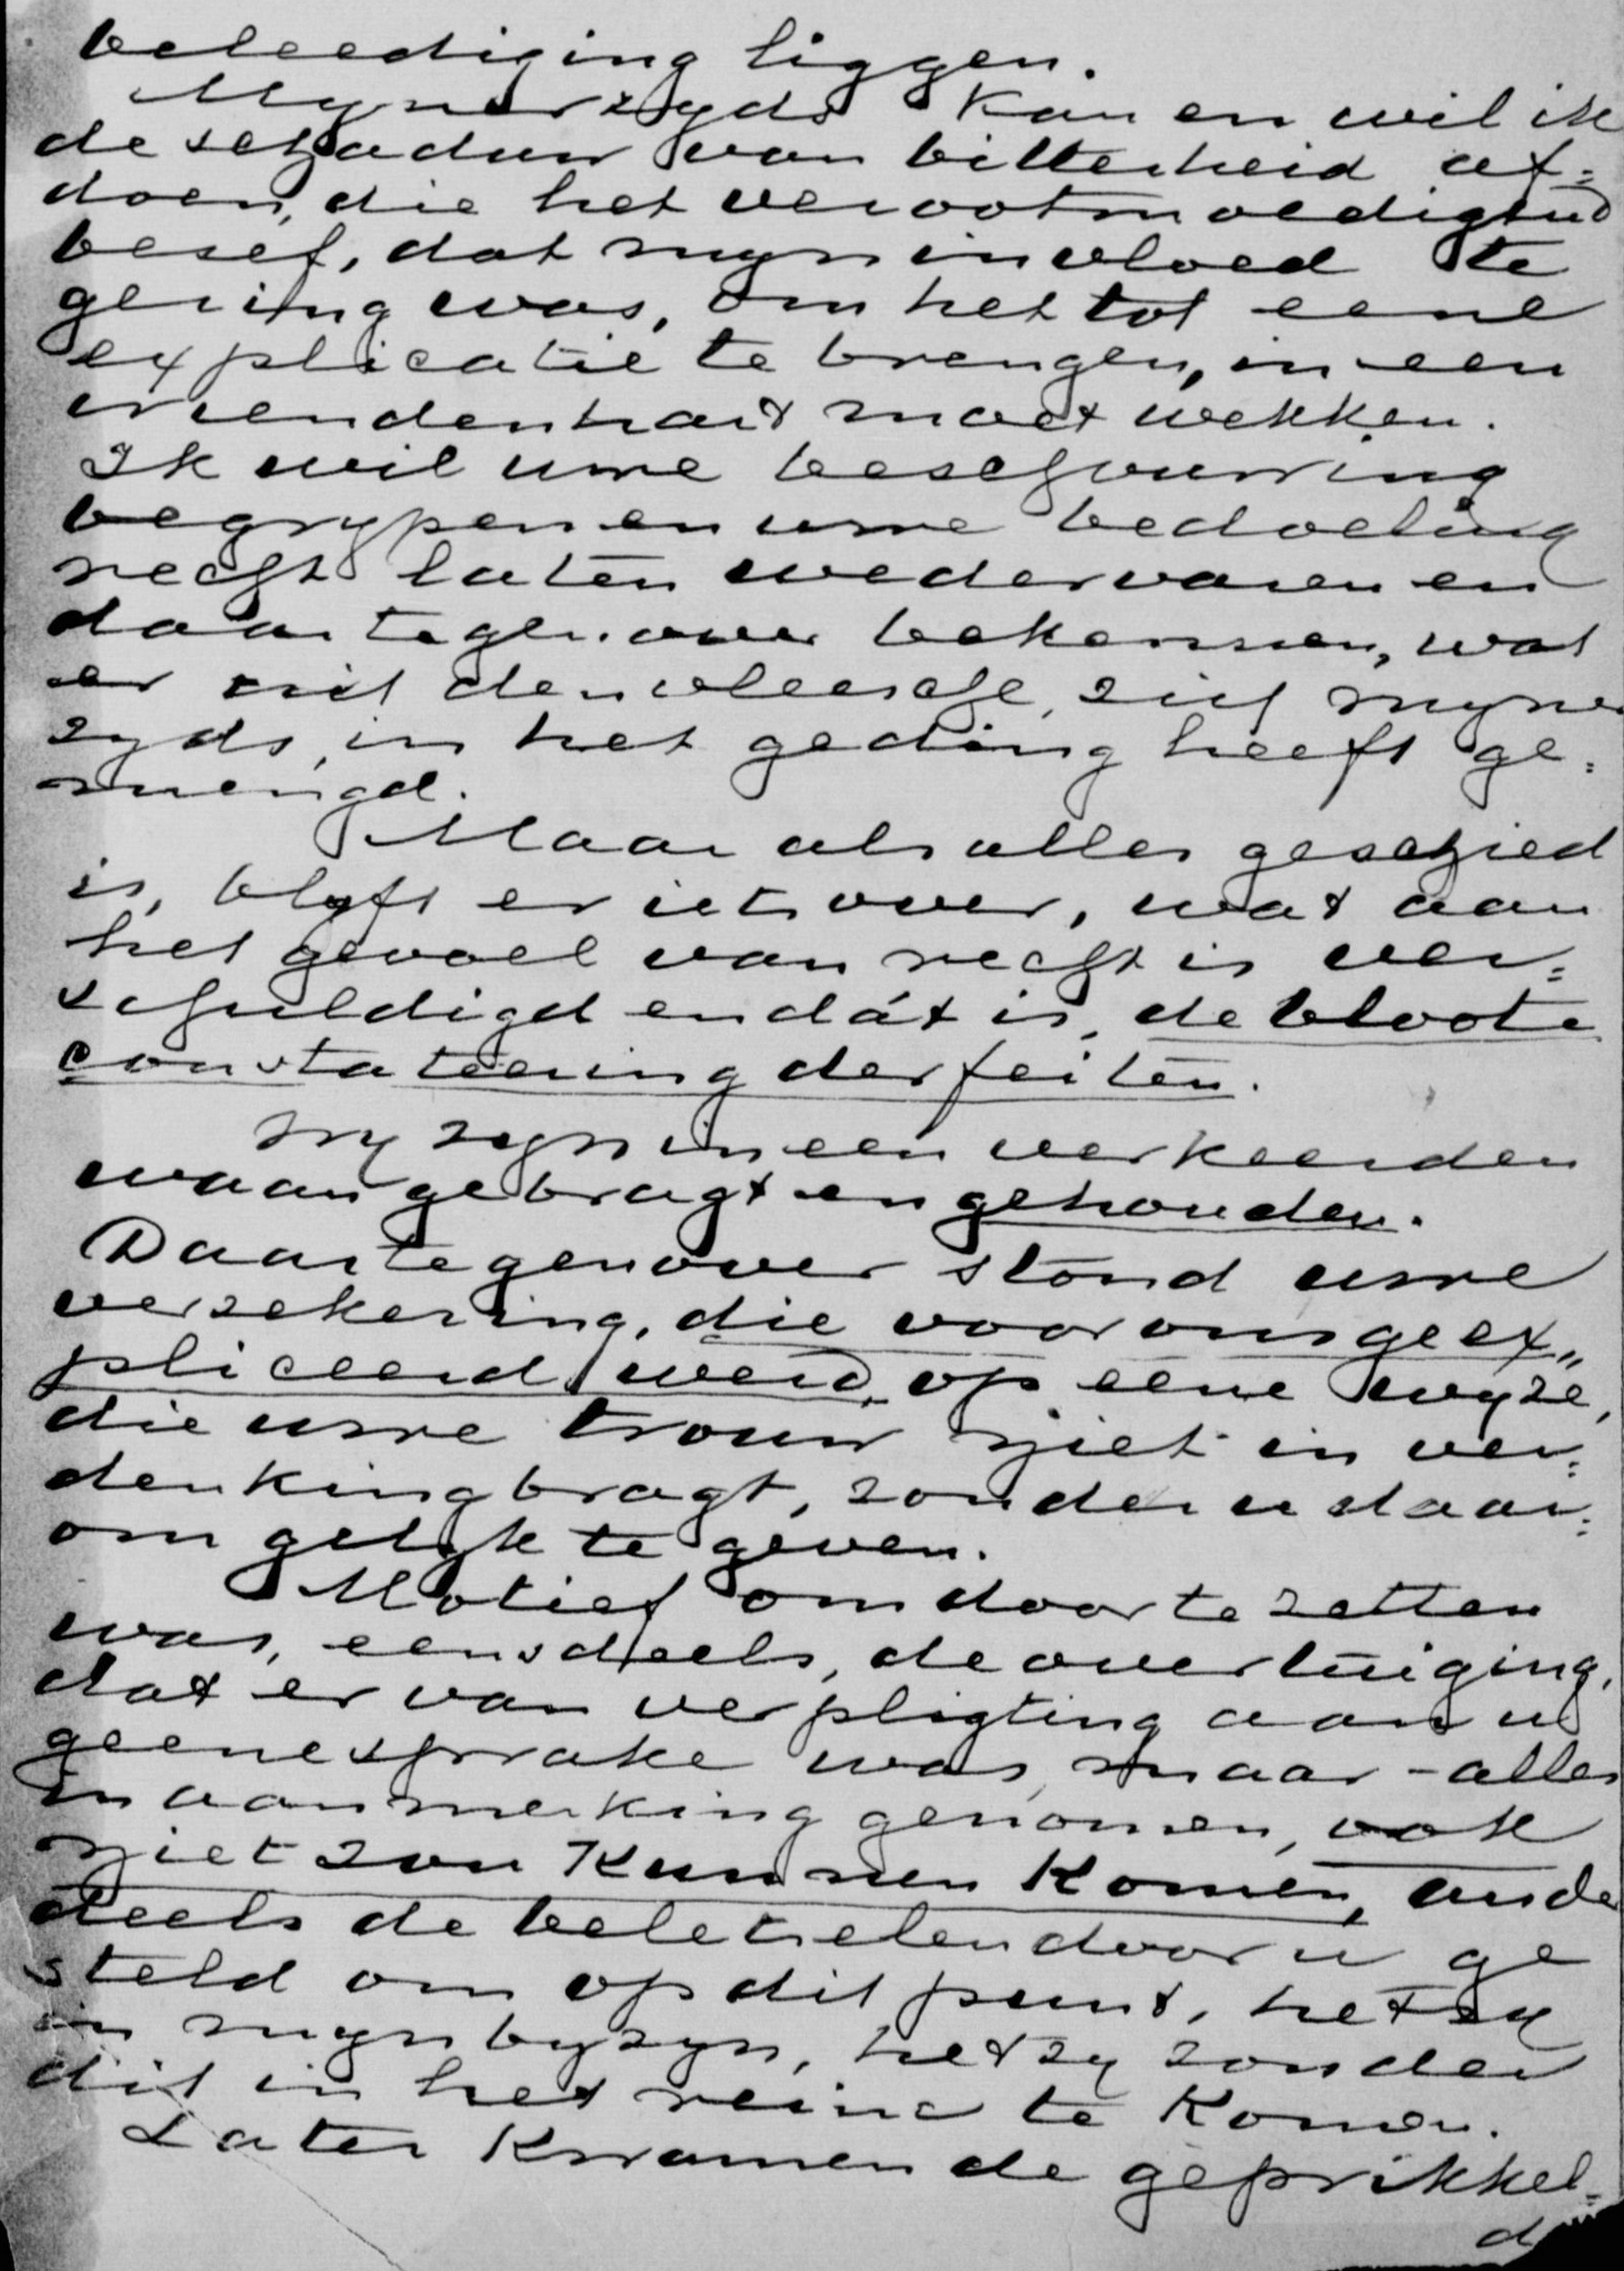 beleediging liggen.
Mynerzyds kan en wil ik
de schaduw van bitterheid af=
doen, die het verootmoedigend
besef, dat myn invloed te
gering was, om het tot eene
explicatie te brengen, in een
vriendenhart moet wekken.
Ik wil uwe beschouwing
begrypen en uwe bedoeling
recht laten wedervaren en
daartegenover bekennen, wat
er uit den vleesche, zich myner
zyds, in het geding heeft ge=
mengd.
Maar als alles geschied
is, blyft er iets over, wat aan
het gevoel van recht is ver=
schuldigd en dát is, de bloote
constateering der feiten.
Wy zyn in een verkeerden
waan gebragt en gehouden.
Daartegenover stond uwe
verzekering, die voor ons geex„
pliceerd werd op eene wyze,
die uwe trouw niet in ver=
denking bragt, zonder u daar=
om gelyk te geven.
Motief om door te zetten
was, eensdeels, de overtuiging,
dat er van verpligting aan u
geene sprake was, maar - alles
in aanmerking genomen, ook
niet zou kunnen komen, ander
deels de beletselen door u ge
steld om op dit punt, hetzy
in myn byzyn, hetzy zonder
dit in het reine te komen.
Later kwamen de geprikkel=
d